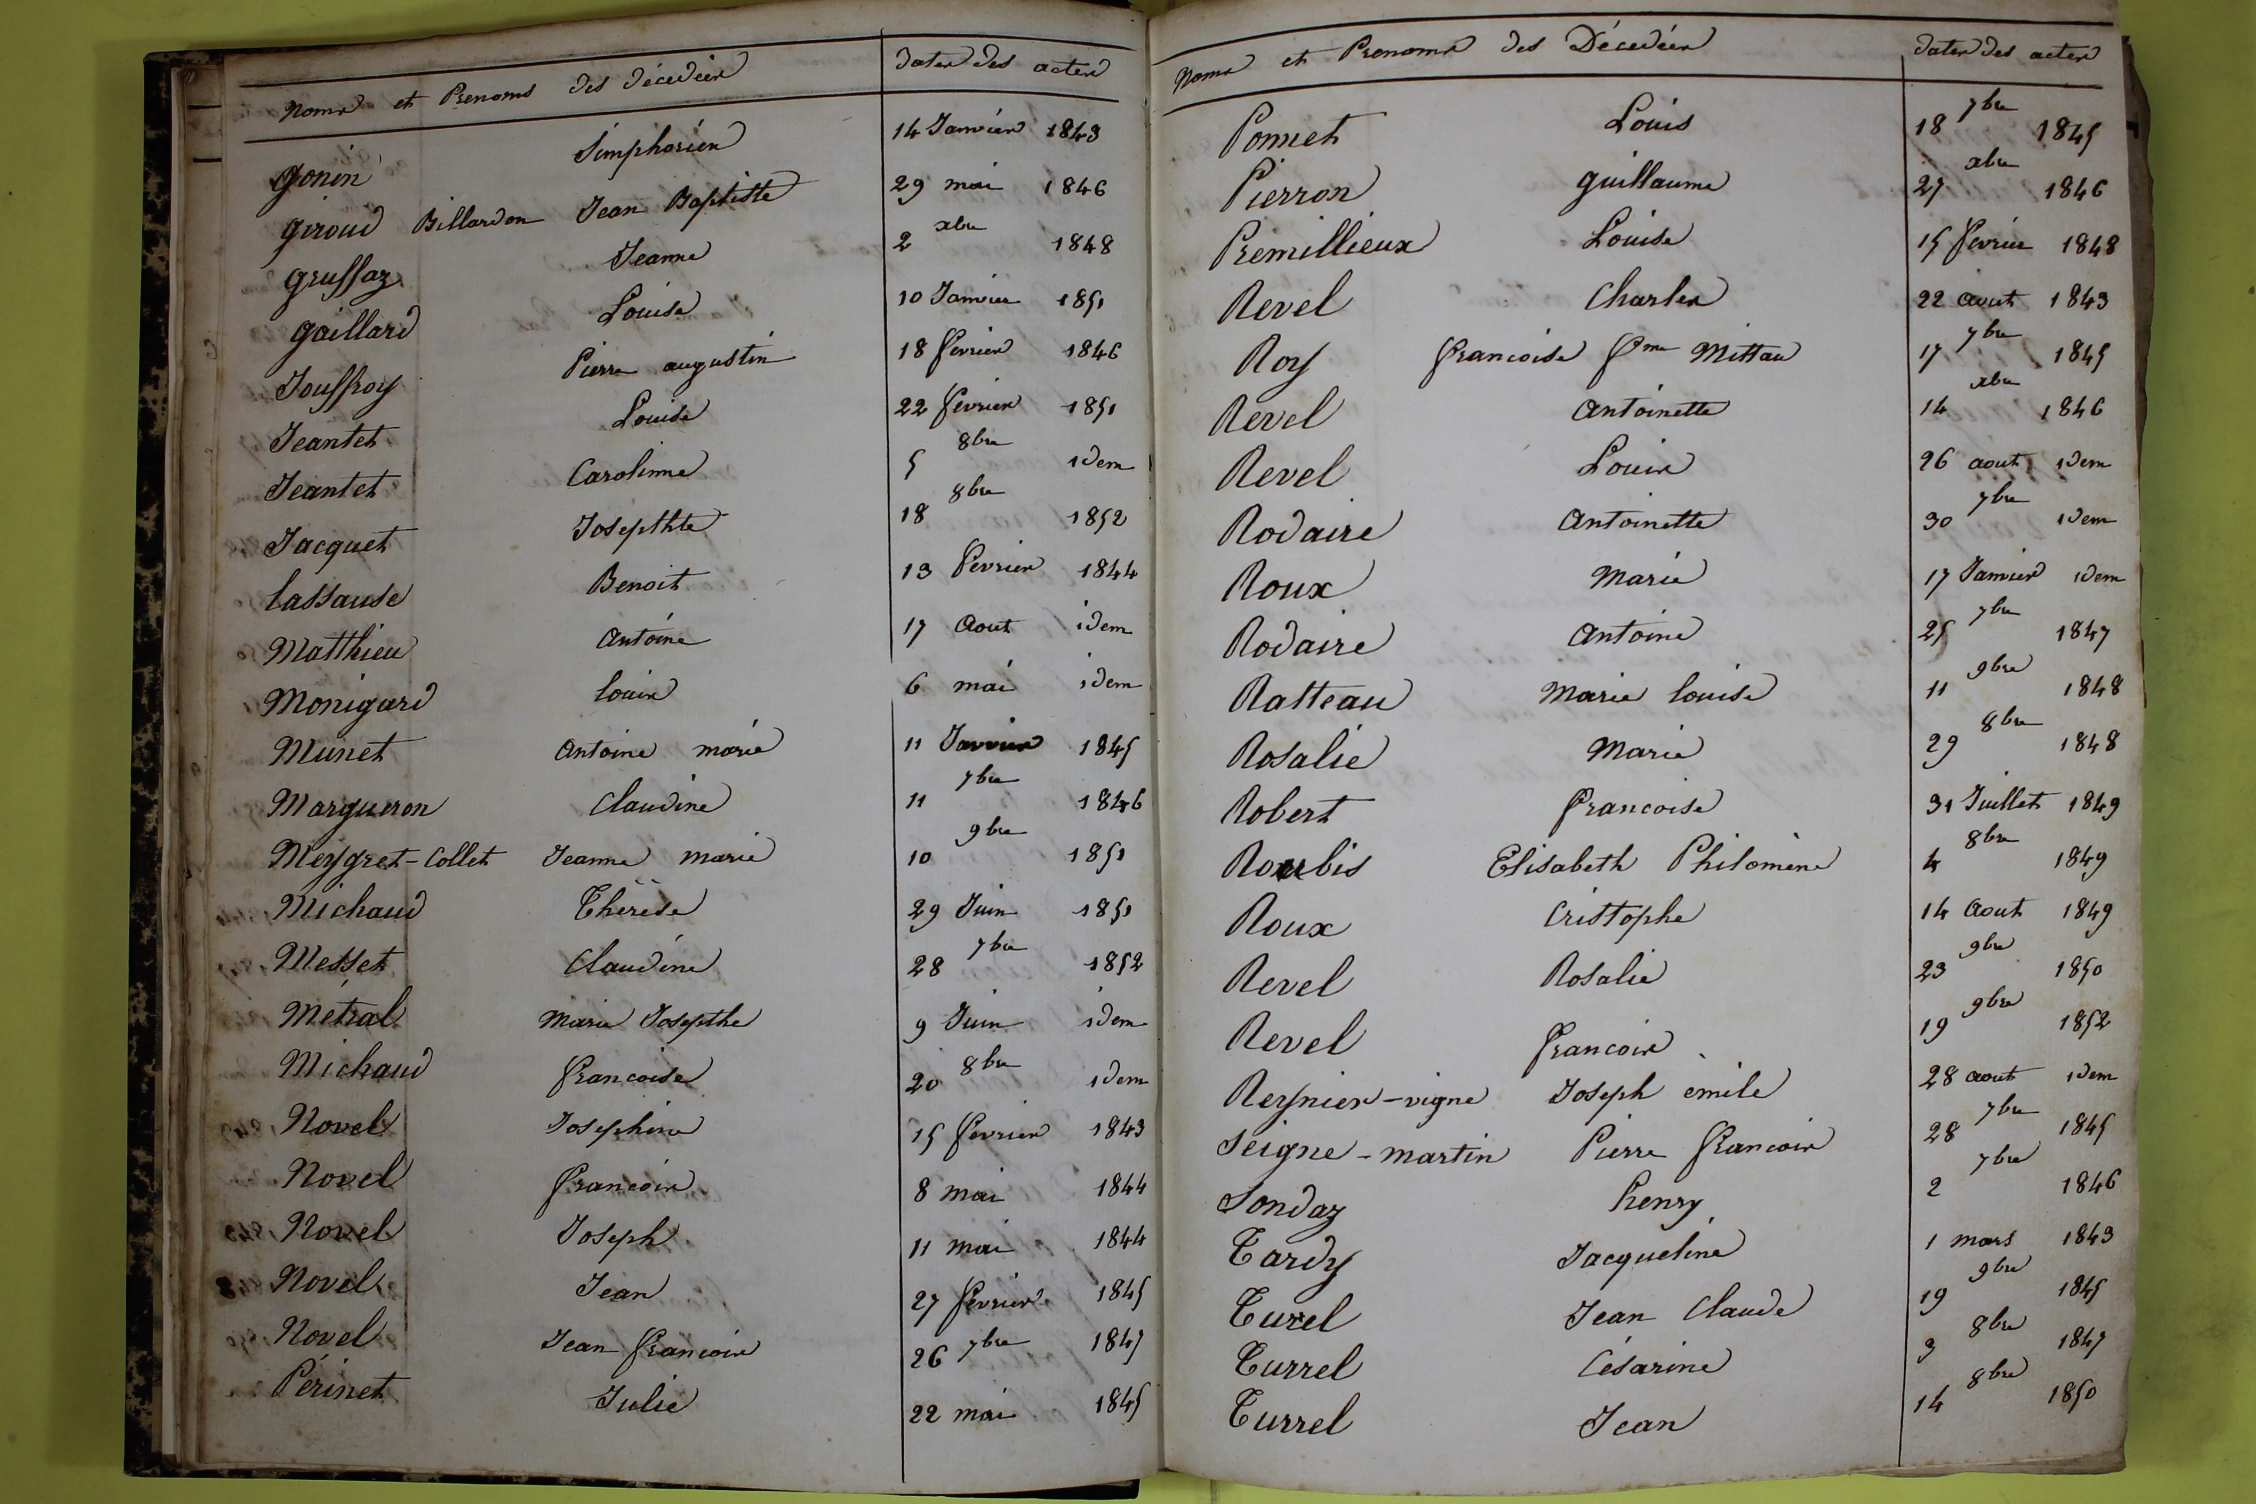 Noms et Prenoms des décédés dates des actes
gonin Simphorien 14 Janvier 1843
giroud Billardon Jean Baptiste 29 mai 1846
gruffaz Jeanne 2 xbre 1848
gaillard Louise 10 Janvier 1851
Jouffroy Pierre augustin 18 fevrier 1846
Jeantet Louise 22 fevrier 1851
Jeantet Carolinne 5 8bre idem
Jacquet Josephte 18 8bre 1852
lassause Benoit 13 Fevrier 1844
Matthieu Antoine 17 Aout idem
Monigard louis 6 mai idem
Munet Antoine marie 11 Janvier 1845
Margueron Claudine 11 7bre 1846
Meygret-Collet Jeanne marie 10 9bre 1851
Michaud Thérèse 29 Juin 1851
Messet Claudine 28 7bre 1852
Métral Marie Josepthe 9 Juin idem
Michaud francoise 20 8bre idem
Novel Josephine 15 fevrier 1843
Novel francois 8 mai 1844
Novel Joseph 11 mai 1844
Novel Jean 27 fevrier 1845
Novel Jean francois 26 7bre 1845
Périnet Julie 22 mai 1845
Noms et Prenoms des Décédés dates des actes
Ponnet Louis 18 7bre 1845
Pierron guillaume 27 xbre 1846
Premillieux Louise 15 fevrier 1848
Revel Charles 22 aout 1843
Roy francoise fme Mittau 17 7bre 1845
Revel Antoinette 14 xbre 1846
Revel Louis 26 aout idem
Rodaire Antoinette 30 7bre idem
Roux Marie 17 Janvier idem
Rodaire Antoine 25 7bre 1847
Ratteau Marie louise 11 9bre 1848
Rosalie Marie 29 8bre 1848
Robert francoise 31 Juillet 1849
Roubis Elisabeth Philomène 4 8bre 1849
Roux Cristophe 14 Aout 1849
Revel Rosalie 23 9bre 1850
Revel francois 19 9bre 1852
Reynier-vigne Joseph emile 28 aout idem
Seigne-martin Pierre francois 28 7bre 1845
Sondaz henry 2 7bre 1846
Tardy Jacqueline 1 mars 1843
Turel Jean Claude 19 9bre 1845
Turrel Césarine 3 8bre 1847
Turrel Jean 14 8bre 1850